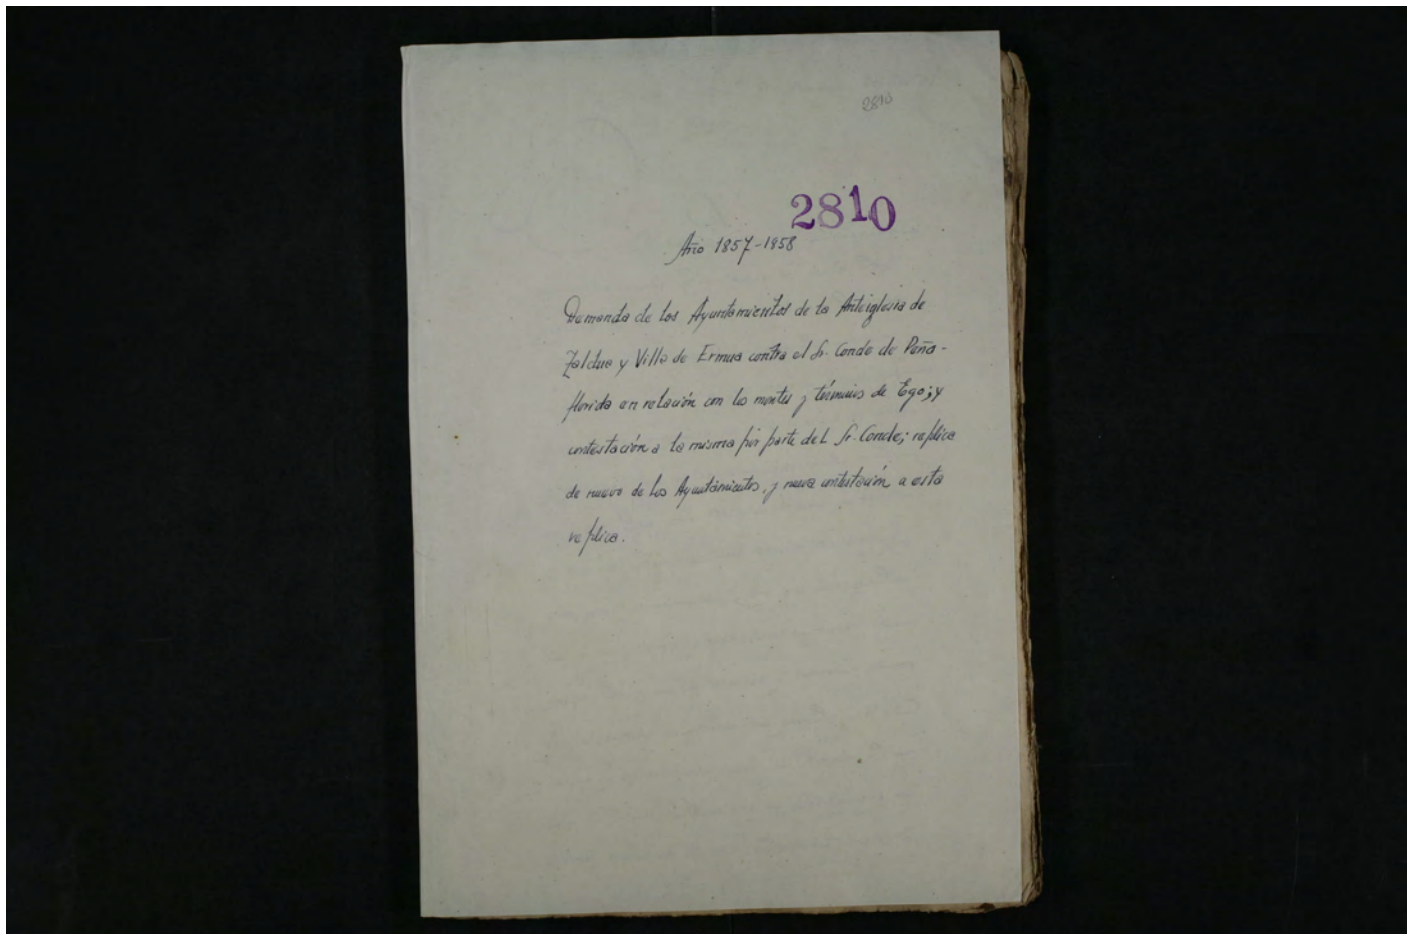 2810
2810
Año 1857-1858
Demanda de los Ayuntamientos de la Anteiglesia de
Zaldua y Villa de Ermua contra el Sr. Conde de Peña-
florida en relación con los montes y términos de Ego; y
contestación a la misma por parte del Sr. Conde; replica
de nuevo de los Ayuntamientos, y nueva contestación a esta
replica.